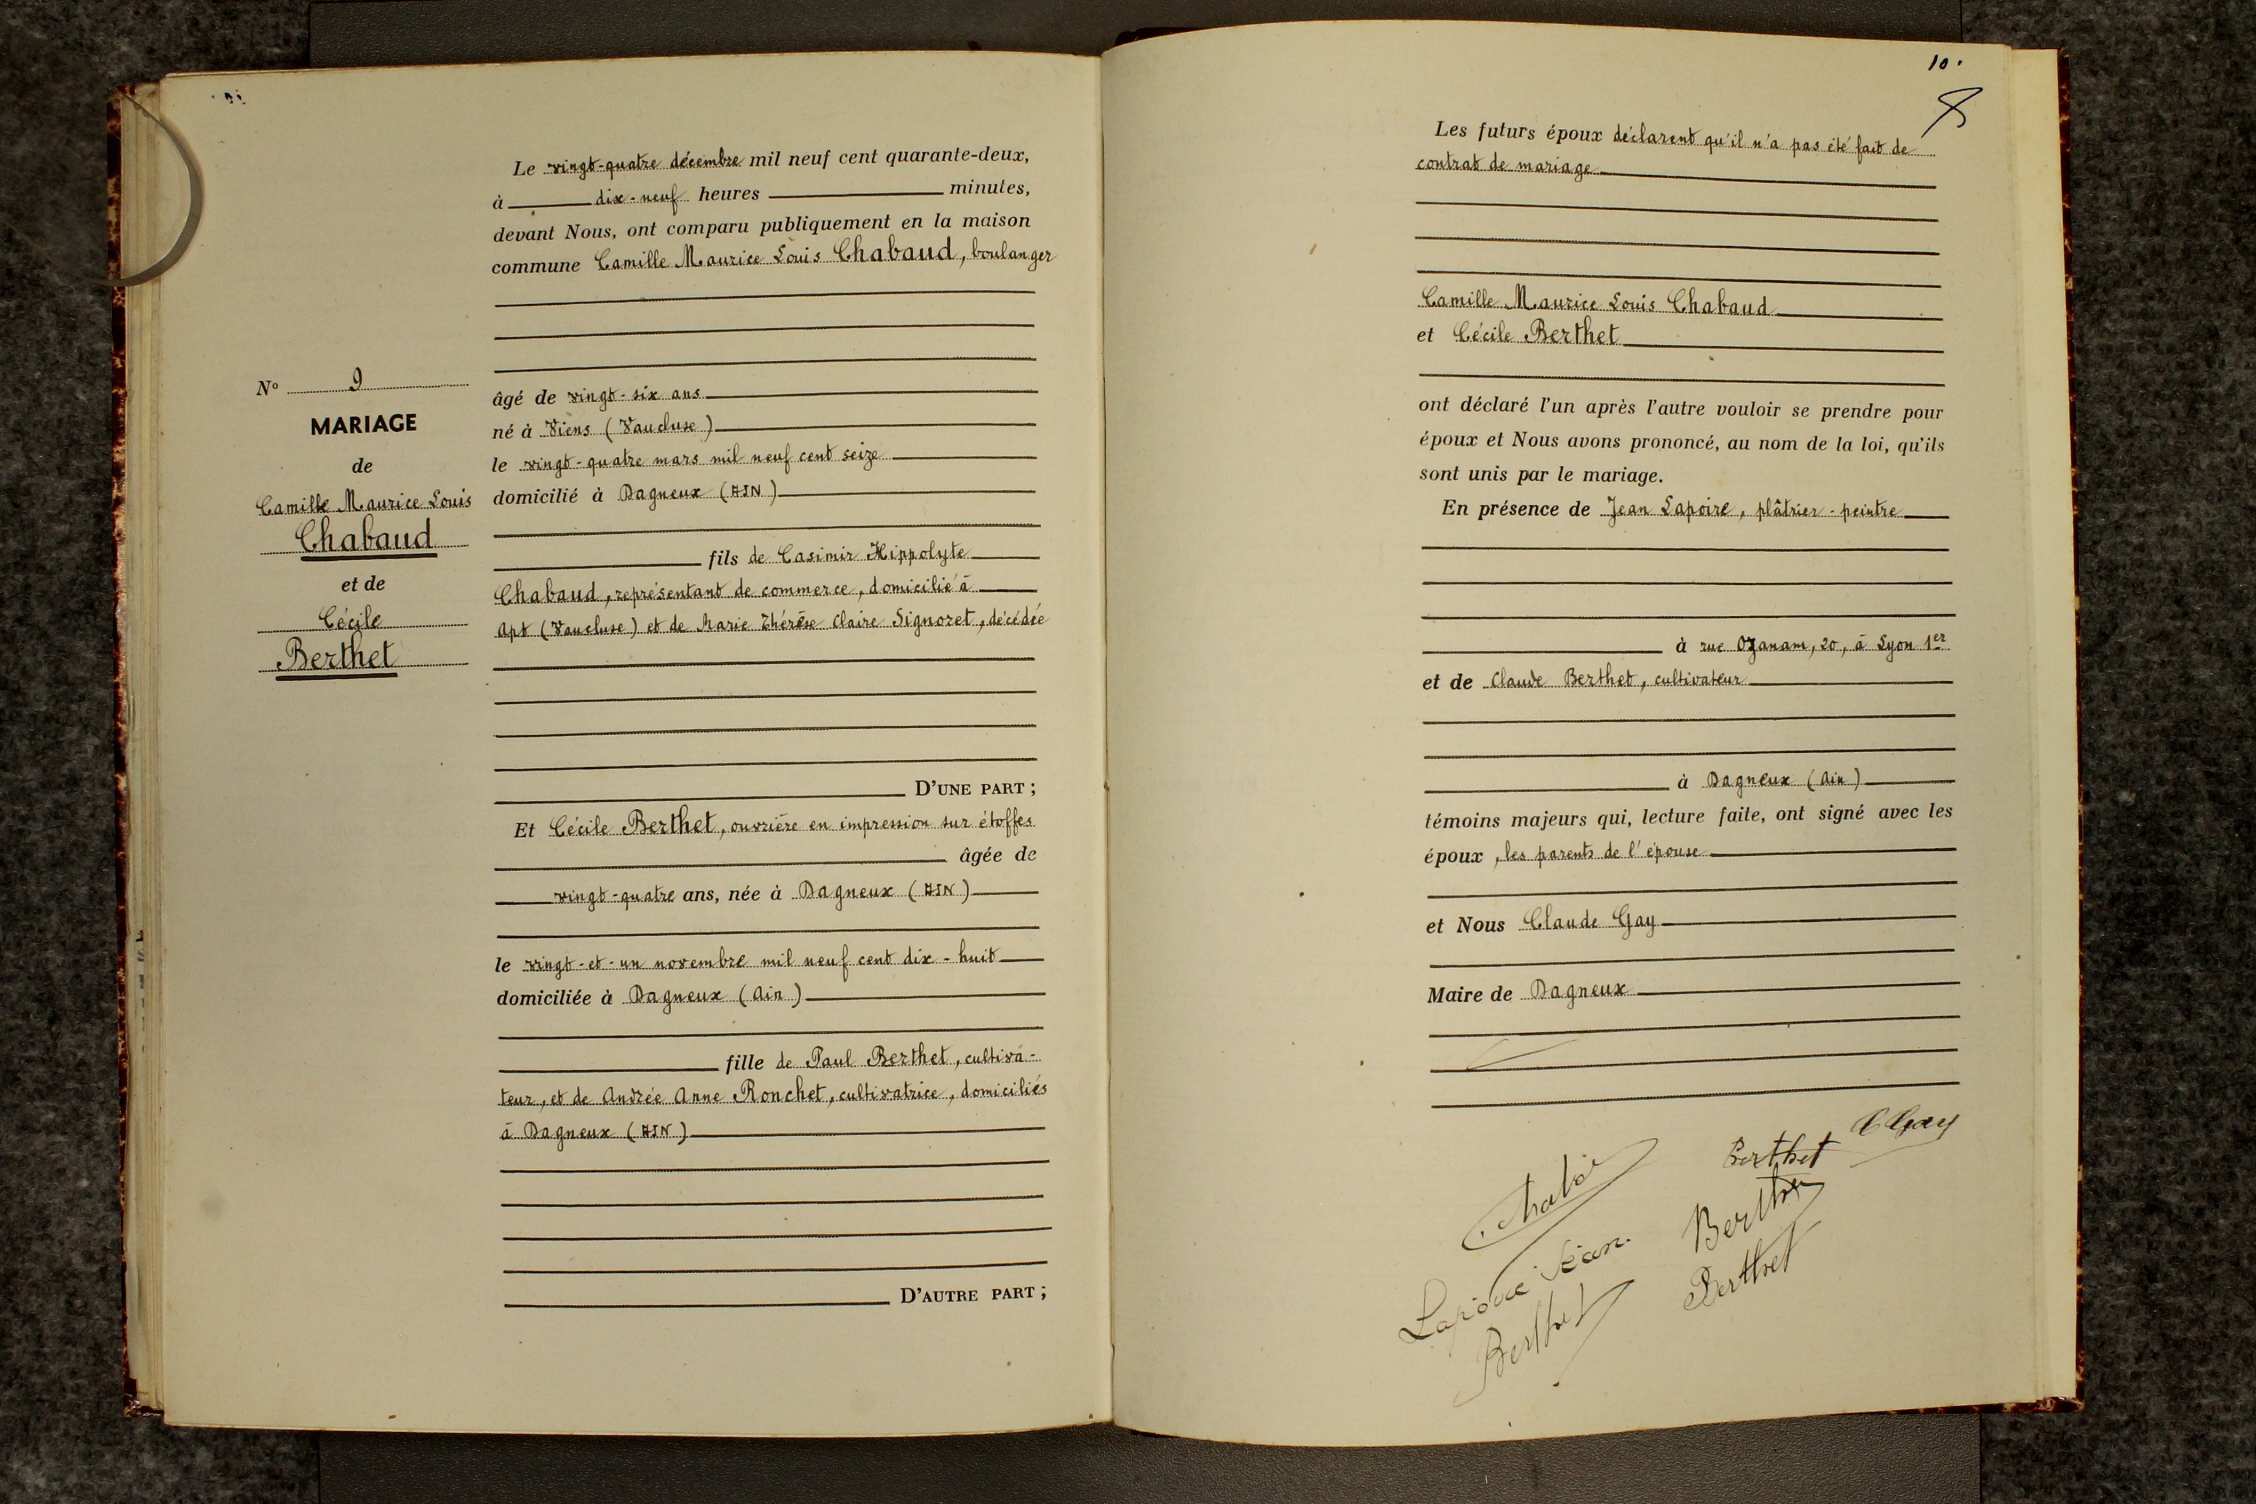 Le vingt-quatre décembre mil neuf cent quarante-deux,
à dix-neuf heures minutes,
devant Nous, ont comparu publiquement en la maison
commune Camille Maurice Louis Chabaud, boulanger
âgé de vingt-six ans
né à Viens (Vaucluse)
le vingt-quatre mars mil neuf cent seize
domicilié à Dagneux (AIN)
fils de Casimir Hippolyte
Chabaud, représentant de commerce, domicilié à
Apt (Vaucluse) et de Marie Thérèse Claire Signoret, décédée
D'UNE PART ;
Et Cécile Berthet, ouvrière en impression sur étoffes
âgée de
vingt-quatre ans, née à Dagneux (AIN)
le vingt-et-un novembre mil neuf cent dix-huit
domiciliée à Dagneux (Ain)
fille de Paul Berthet, cultiva-
teur, et de Andrée Anne Ronchet, cultivatrice, domiciliés
à Dagneux (AIN)
D'AUTRE PART ;
N° 9
MARIAGE
de
Camille Maurice Louis
Chabaud
et de
Cécile
Berthet
10.
Les futurs époux déclarent qu'il n'a pas été fait de
contrat de mariage
Camille Maurice Louis Chabaud
et Cécile Berthet
ont déclaré l'un après l'autre vouloir se prendre pour
époux et Nous avons prononcé, au nom de la loi, qu'ils
sont unis par le mariage.
En présence de Jean Lapoire, plâtrier-peintre
à rue Ozanam, 20, à Lyon 1er
et de Claude Berthet, cultivateur
à Dagneux (Ain)
témoins majeurs qui, lecture faite, ont signé avec les
époux, les parents de l'épouse
et Nous Claude Gay
Maire de Dagneux
C Gay
Berthet
Berthet
Lapoire Jean
Berthet
Berthet